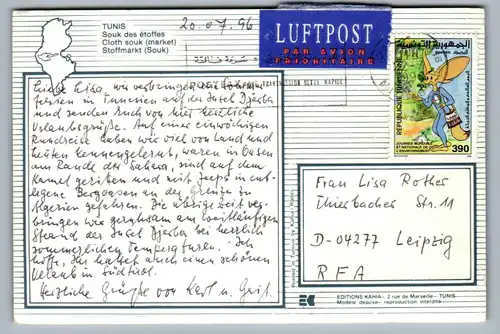 TUNIS
Souk des étoffes
Cloth souk (market)
Stoffmarkt (Souk)
20.07.96
LUFTPOST
PAR AVION
PRIORITAIRE
REPUBLIQUE TUNISIENNE
JOURNEE MONDIALE
ET NATIONALE DE
L'ENVIRONNEMENT
390
Liebe Lisa, wir verbringen
ferien in Tunesien auf der Insel Djerba
und senden Euch von hier herzliche
Urlaubsgrüße. Auf einer einwöchigen
Rundreise haben wir viel von Land und
Leuten kennengelernt, waren in Oasen
am Rande der Sahara, sind auf dem
Kamel geritten und mit Jeeps in ent-
legene Bergoasen an der Grenze zu
Algerien gefahren. Die übrige Zeit ver-
bringen wir geruhsam am weitläufigen
Strand der Insel Djerba bei herrlich
sommerlichen Temperaturen. Ich
hoffe, Ihr hattet auch einen schönen
Urlaub in Südtirol.
Herzliche Grüße von Karl u. Grit.
Frau Lisa Rother
Thierbacher Str. 11
D-04277 Leipzig
RFA
EDITIONS KAHIA - 2 rue de Marseille - TUNIS
Modèle déposé - reproduction interdite